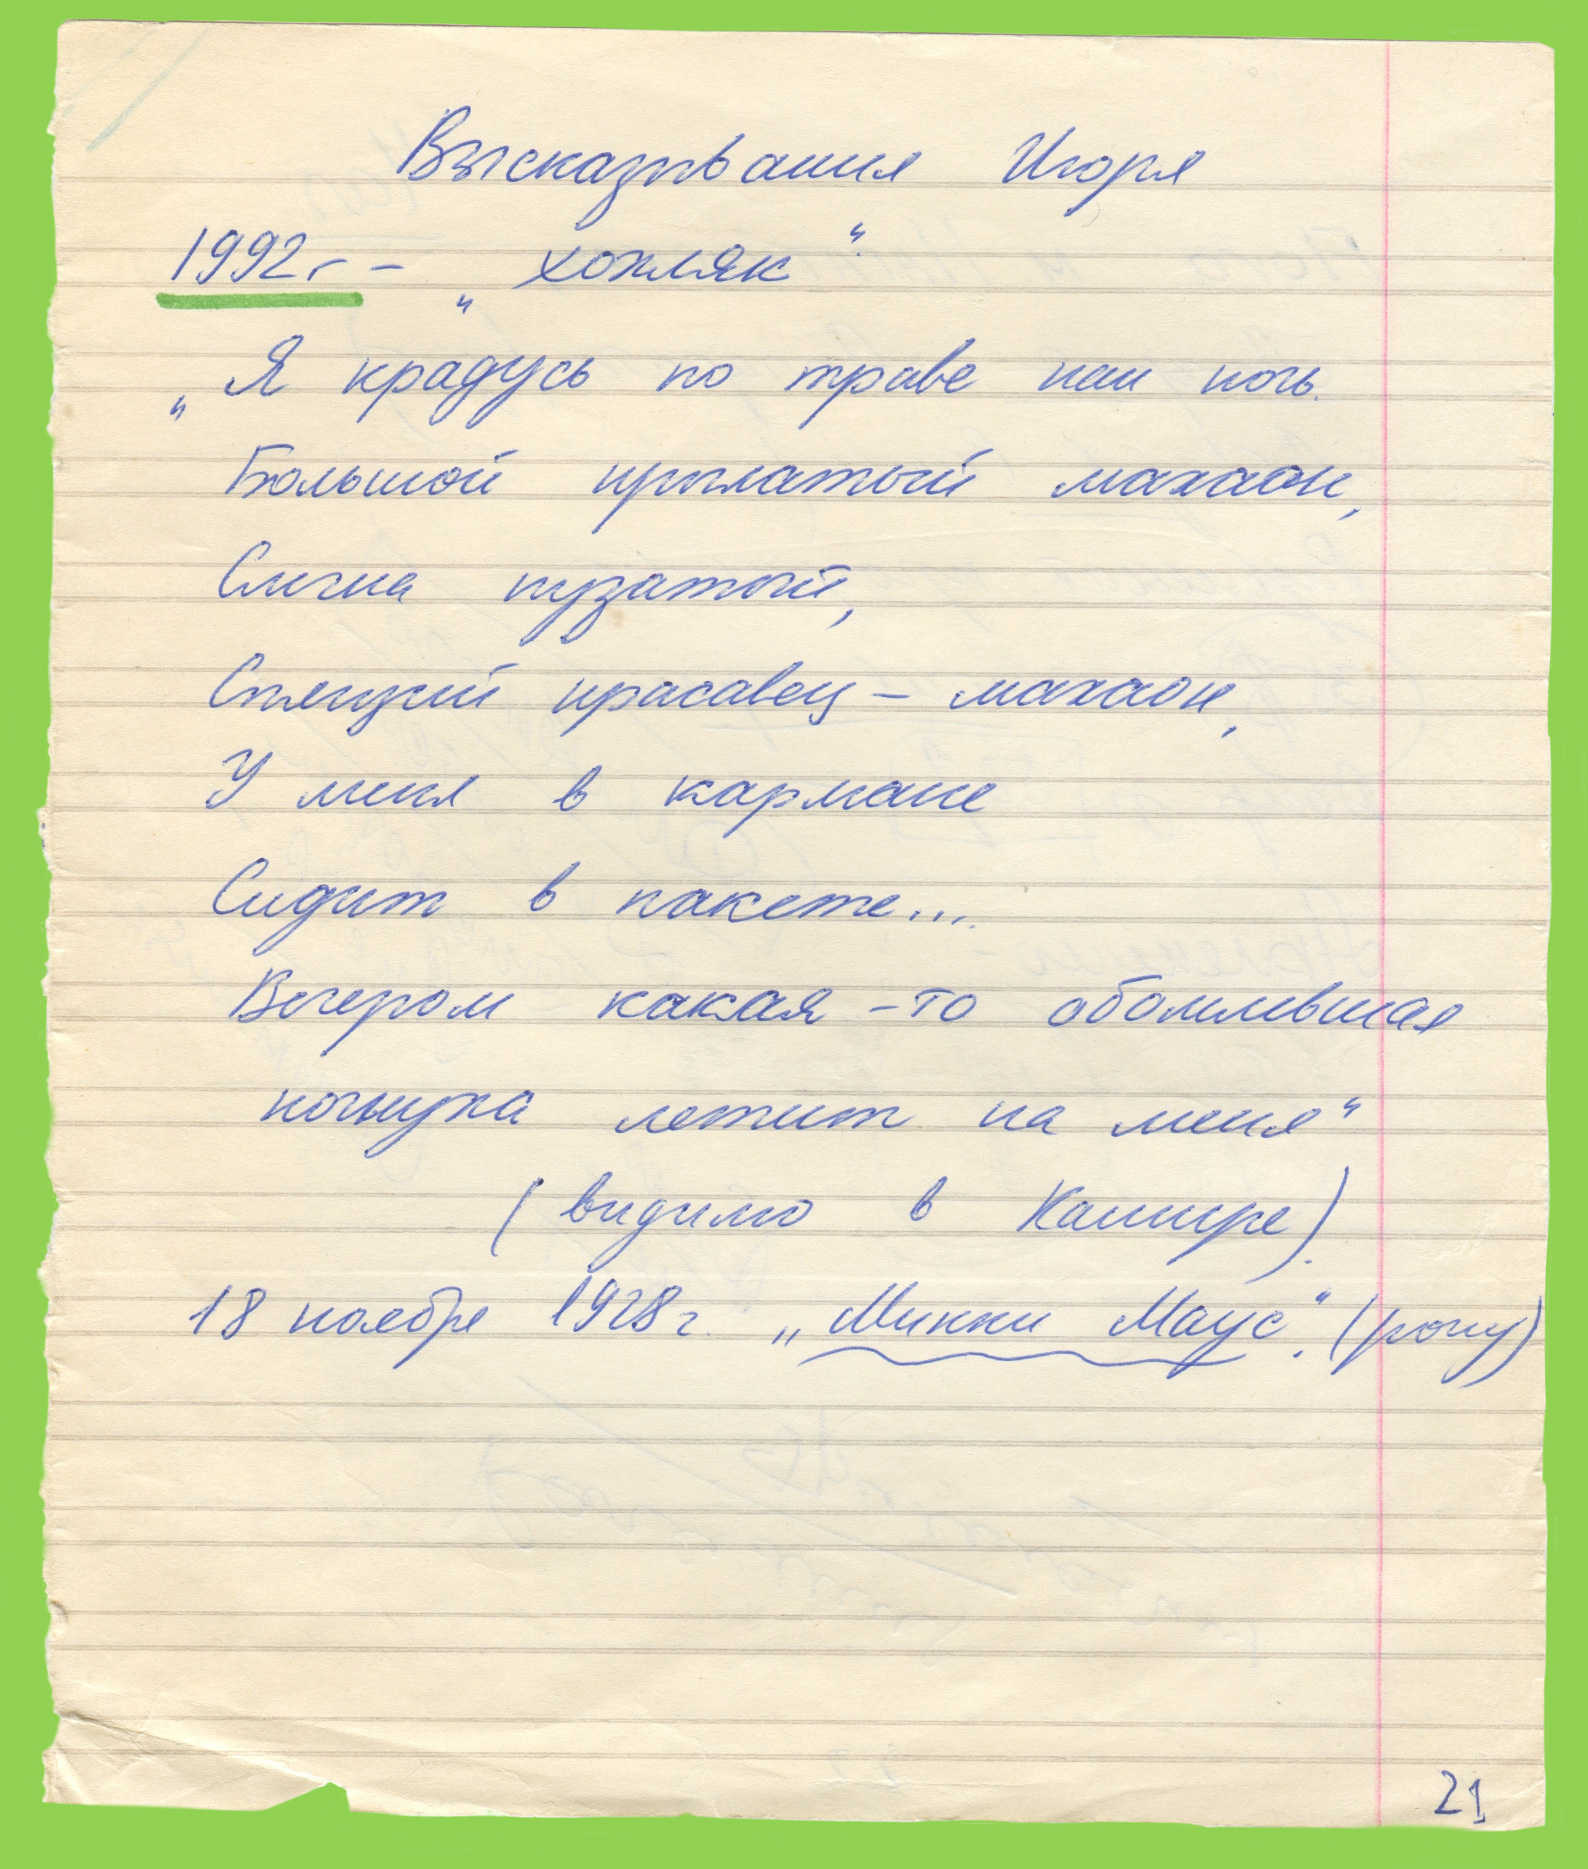 Высказывания Игоря
1992г - „хомляк“
„Я крадусь по траве как ночь.
Большой крылатый махаон,
Слегка пузатый,
Спящий красавец - махаон,
У меня в кармане
Сидит в пакете...
Вечером какая-то обомлевшая
ночнушка летит на меня“
(видимо в Кашире).
18 ноября 1928г. „Микки Маус“. (рожд)
21